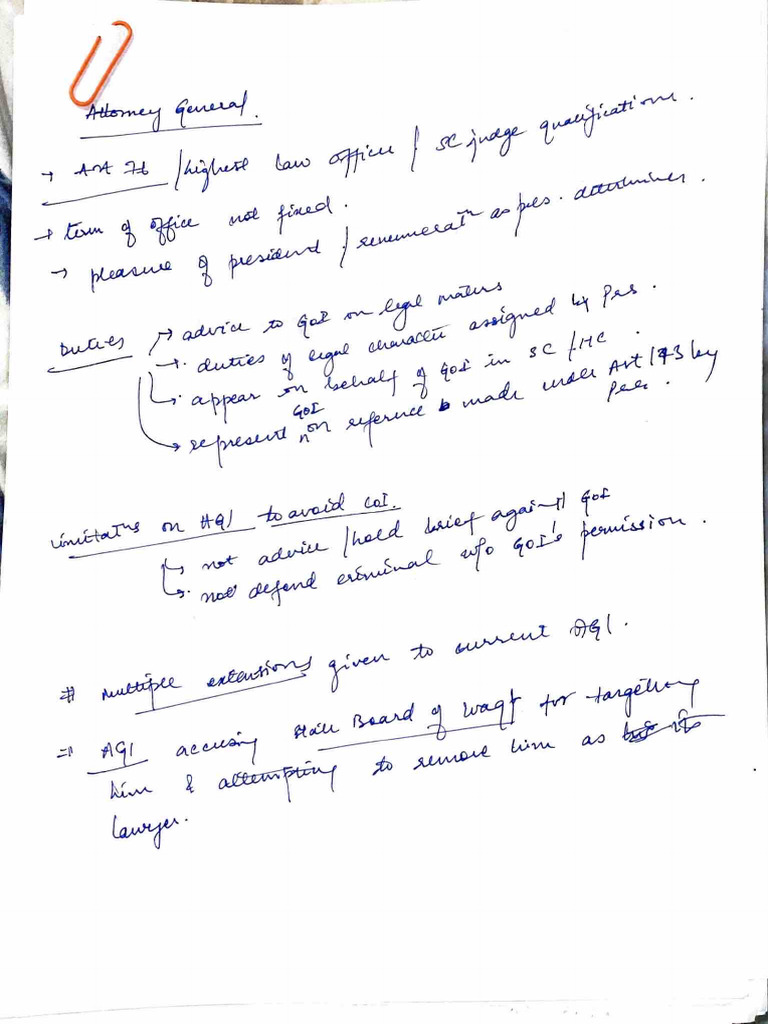 Attorney General.
→ Art 76 / highest law officer / SC judge qualifications.
→ term of office not fixed.
→ pleasure of president / renumeratn as pres. determines.
Duties → advice to GoI on legal matters
→ duties of legal character assigned by Pres.
→ appear on behalf of GoI in SC / HC.
GoI
→ represent ^ on reference made under Art 143 by
Pres.
limitatns on AGI to avoid CoI.
→ not advice / hold brief against GoI
→ not defend criminal w/o GoI's permission.
# Multiple extensions given to current AGI.
=) AGI accusing State Board of Waqf for targetting
him & attempting to remove him as its
lawyer.